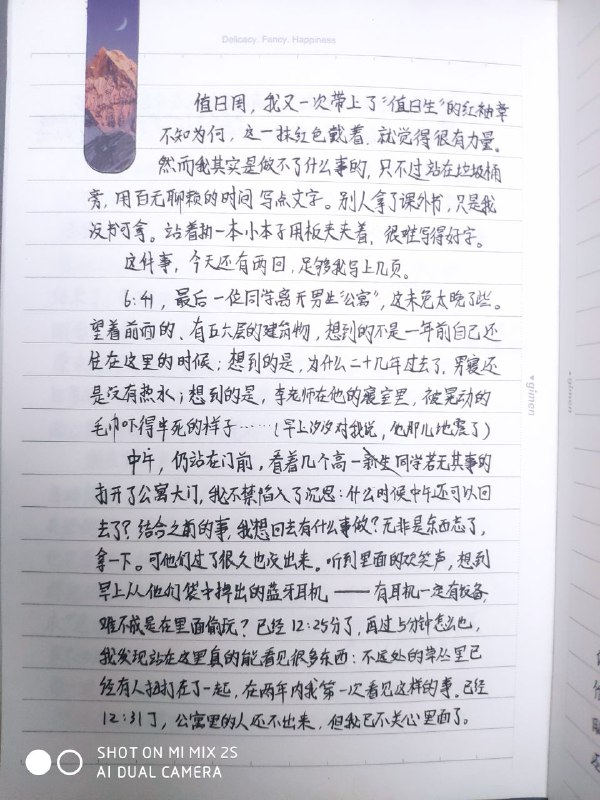 Delicacy. Fancy. Happiness
值日周，我又一次带上了“值日生”的红袖章
不知为何，这一抹红色戴着，就觉得很有力量。
然而我其实是做不了什么事的，只不过站在垃圾桶
旁，用百无聊赖的时间写点文字。别人拿了课外书，只是我
没书可拿。站着把一本小本子用板夹夹着，很难写得好字。
这件事，今天还有两回，足够我写上几页。
6:41，最后一位同学离开男生“公寓”，这未免太晚了些。
望着前面的、有五六层的建筑物，想到的不是一年前自己还
住在这里的时候；想到的是，为什么二十几年过去了，男寝还
是没有热水；想到的是，李老师在他的寝室里，被晃动的
毛巾吓得半死的样子……（早上汐汐对我说，他那儿地震了）
中午，仍站在门前，看着几个高一新生同学若无其事的
打开了公寓大门，我不禁陷入了沉思：什么时候中午还可以回
去了？结合之前的事，我想回去有什么事做？无非是东西忘了，
拿一下。可他们过了很久也没出来。听到里面的欢笑声，想到
早上从他们袋中掉出的蓝牙耳机——有耳机一定有设备，
难不成是在里面偷玩？已经12:25分了，再过5分钟怎么也，
我发现站在这里真的能看见很多东西：不远处的草丛里已
经有人扭打在了一起，在两年内我第一次看见这样的事。已经
12:31了，公寓里的人还不出来，但我已不关心里面了。
gimen
gimen
SHOT ON MI MIX 2S
AI DUAL CAMERA